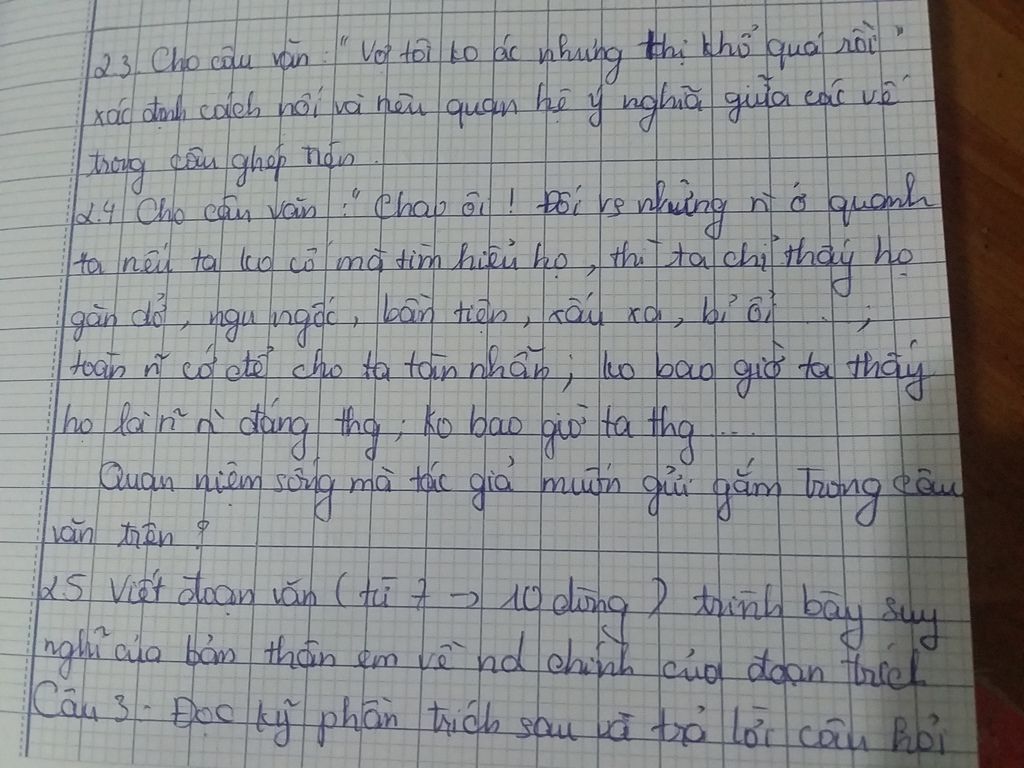 2.3 Cho câu văn: "Vợ tôi ko ác nhưng thị khổ quá rồi"
xác định cách nối và nêu quan hệ ý nghĩa giữa các vế
trong câu ghép trên.
2.4 Cho câu văn: "Chao ôi! Đối vs những ng ở quanh
ta nếu ta ko cố mà tìm hiểu họ, thì ta chỉ thấy họ
gàn dở, ngu ngốc, bần tiện, xấu xa, bỉ ổi ...;
toàn ~ cớ để cho ta tàn nhẫn; ko bao giờ ta thấy
họ là ~ ng đáng thg; ko bao giờ ta thg ...
Quan niệm sống mà tác giả muốn gửi gắm trong câu
văn trên?
2.5 Viết đoạn văn (từ 7 → 10 dòng) trình bày suy
nghĩ của bản thân em về nd chính của đoạn trích
Câu 3. Đọc kỹ phần trích sau và trả lời câu hỏi